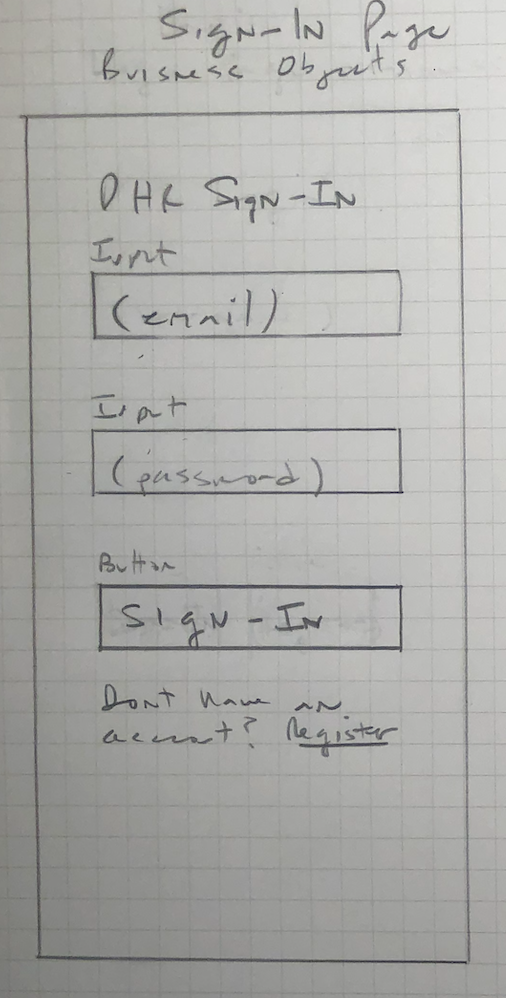 Sign-In Page
Buisness Objects.
DHR Sign-In
Input
(email)
Input
(password)
Button
Sign-In
Dont have an
account? Register